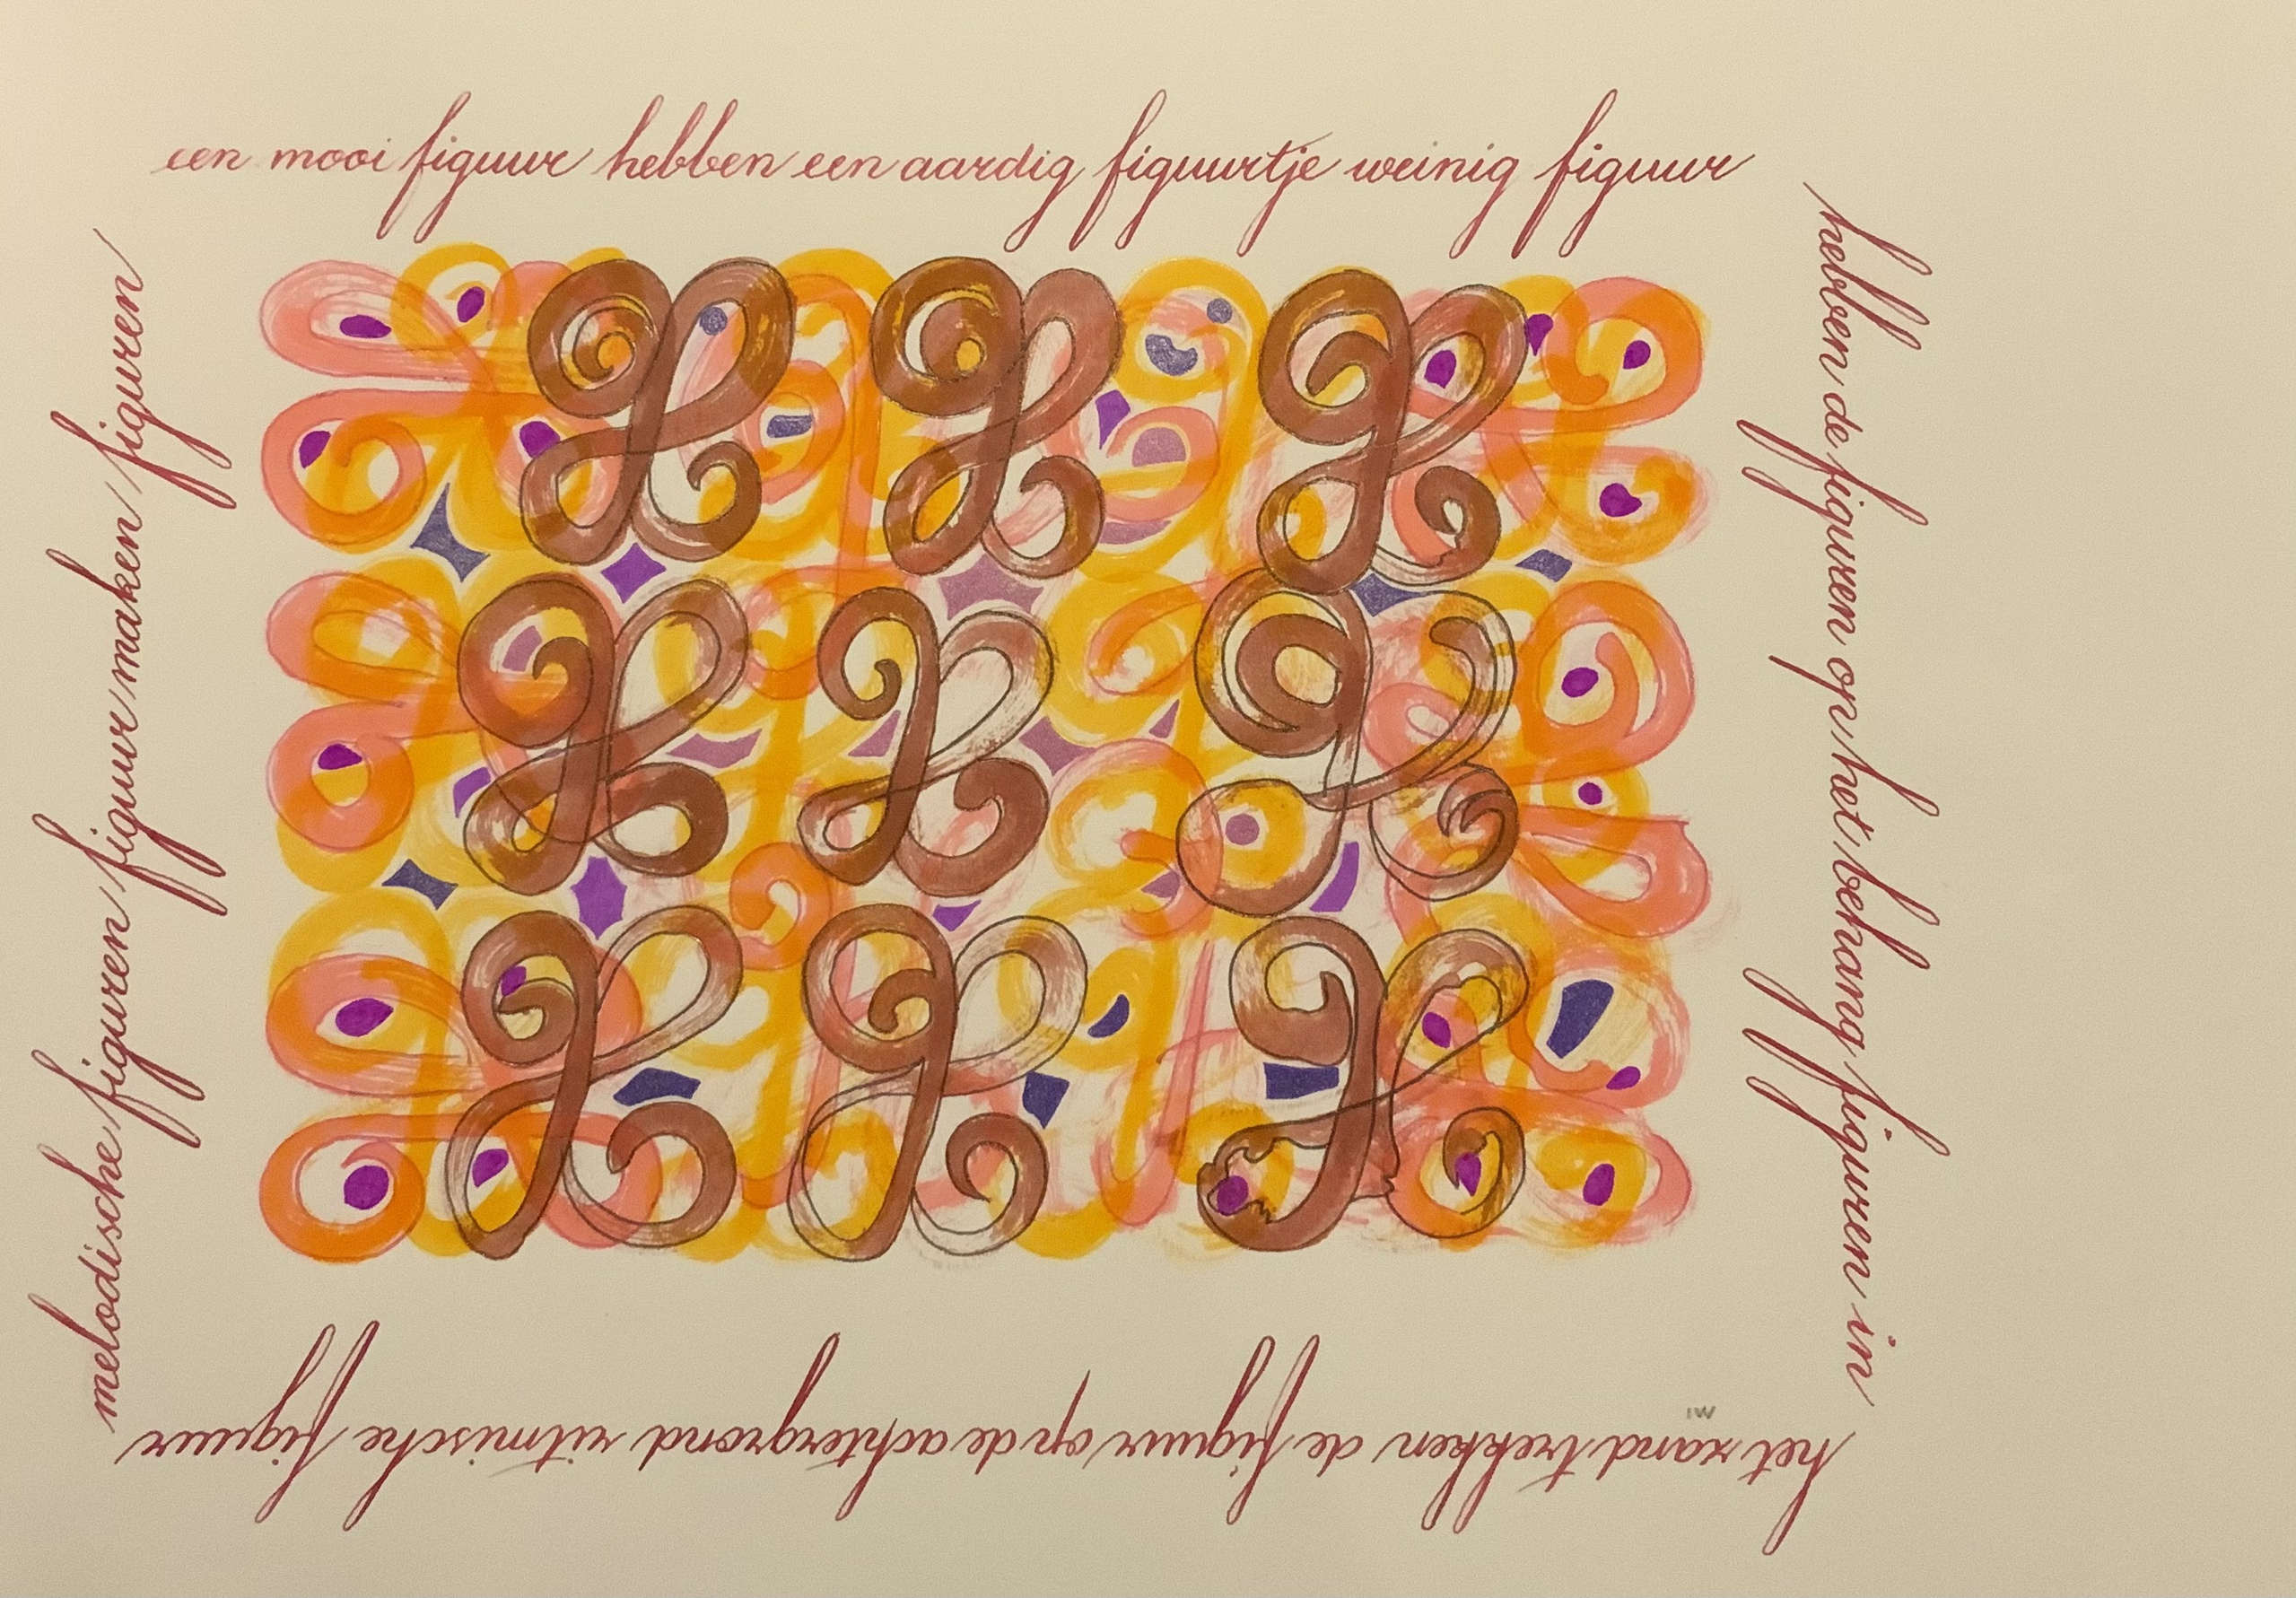 een mooi figuur hebben een aardig figuurtje weinig figuur
hebben de figuren op het behang figuren in
het zand trekken de figuur op de achtergrond ritmische figuur
melodische figuren figuur maken figuren
IW